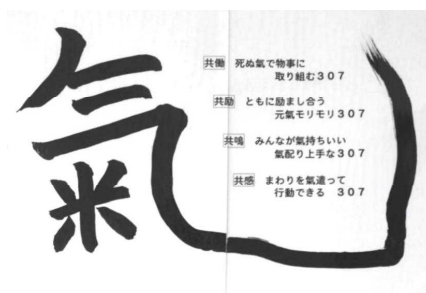 氣
共働 死ぬ氣で物事に
取り組む307
共励 ともに励まし合う
元氣モリモリ307
共鳴 みんなが氣持ちいい
氣配り上手な307
共感 まわりを氣遣って
行動できる 307